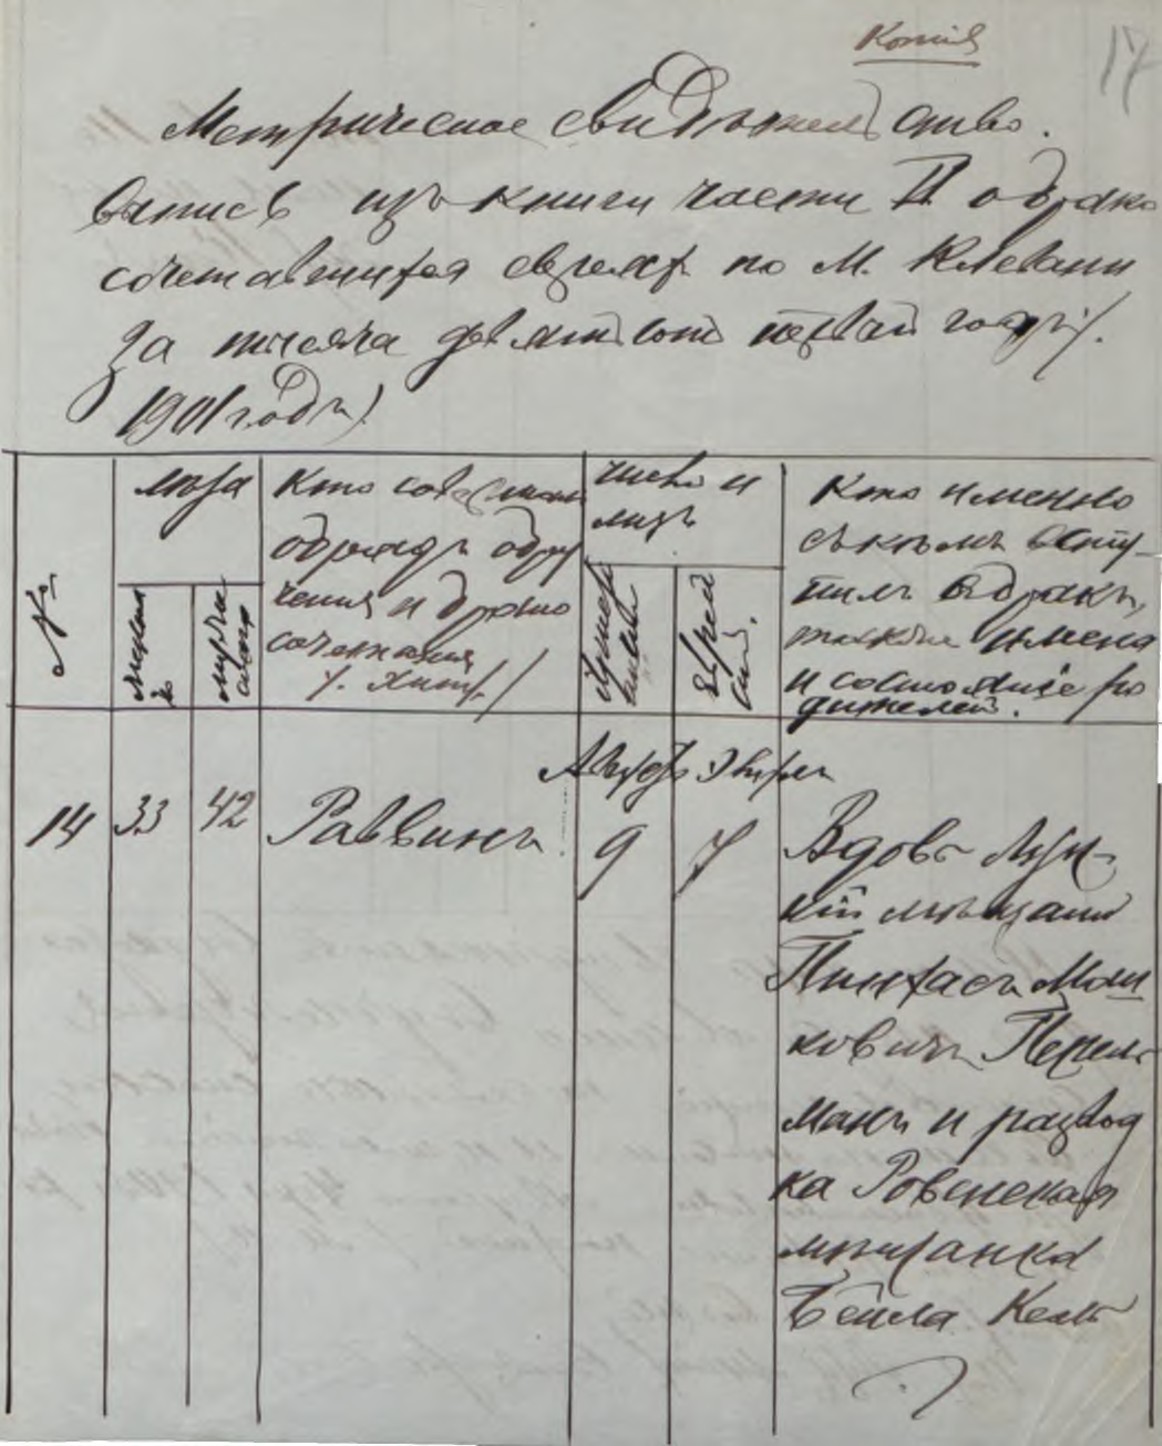 Копія
17
Метрическое свидѣтельство.
Выпись изъ книги части II о брако
сочетавшихся евреяхъ по М. Клевани
за тысяча девятьсотъ первый годъ /.
1901 годъ)
№
лѣта
Женска
мужска
Кто совершалъ
обрядъ обру
ченія и брако
сочетанія
число и
мѣсяцъ
христі
анскій
Еврей
скій.
Кто именно
съ кѣмъ всту-
пилъ въ бракъ,
также имена
и состояніе ро
дителей.
14
33
42
Раввинъ.
9
7
Вдовъ Луц-
кій мѣщанинъ
Пинхасъ Мош
ковичъ Перель
манъ и развод
ка Ровенская
мѣщанка
Бейла Кель